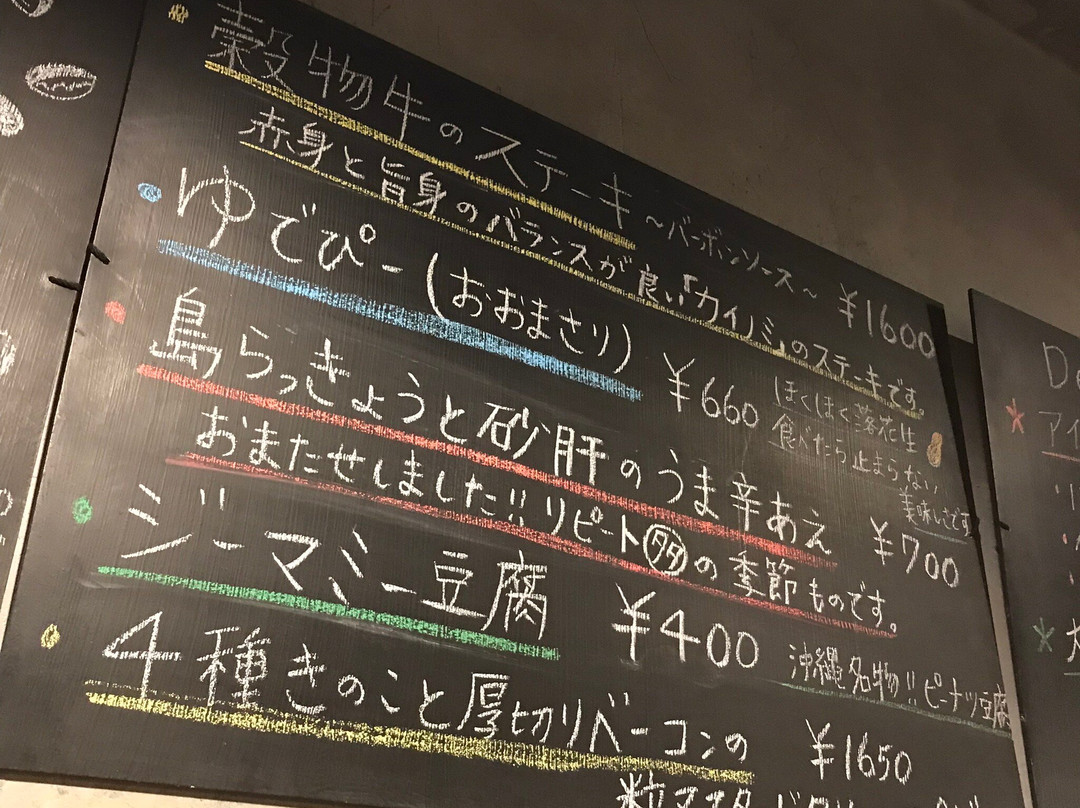 穀物牛のステーキ ~バーボンソース~ ¥1600
赤身と旨身のバランスが良い「カイノミ」のステーキです。
ゆでぴー(おおまさり) ¥660
ほくほく落花生
食べたら止まらない
美味しさです
島らっきょうと砂肝のうま辛あえ ¥700
おまたせしました!! リピート多の季節ものです。
ジーマミー豆腐 ¥400
沖縄名物!! ピーナツ豆腐
4種きのこと厚切りベーコンの ¥1650
粒マスタード
アイ